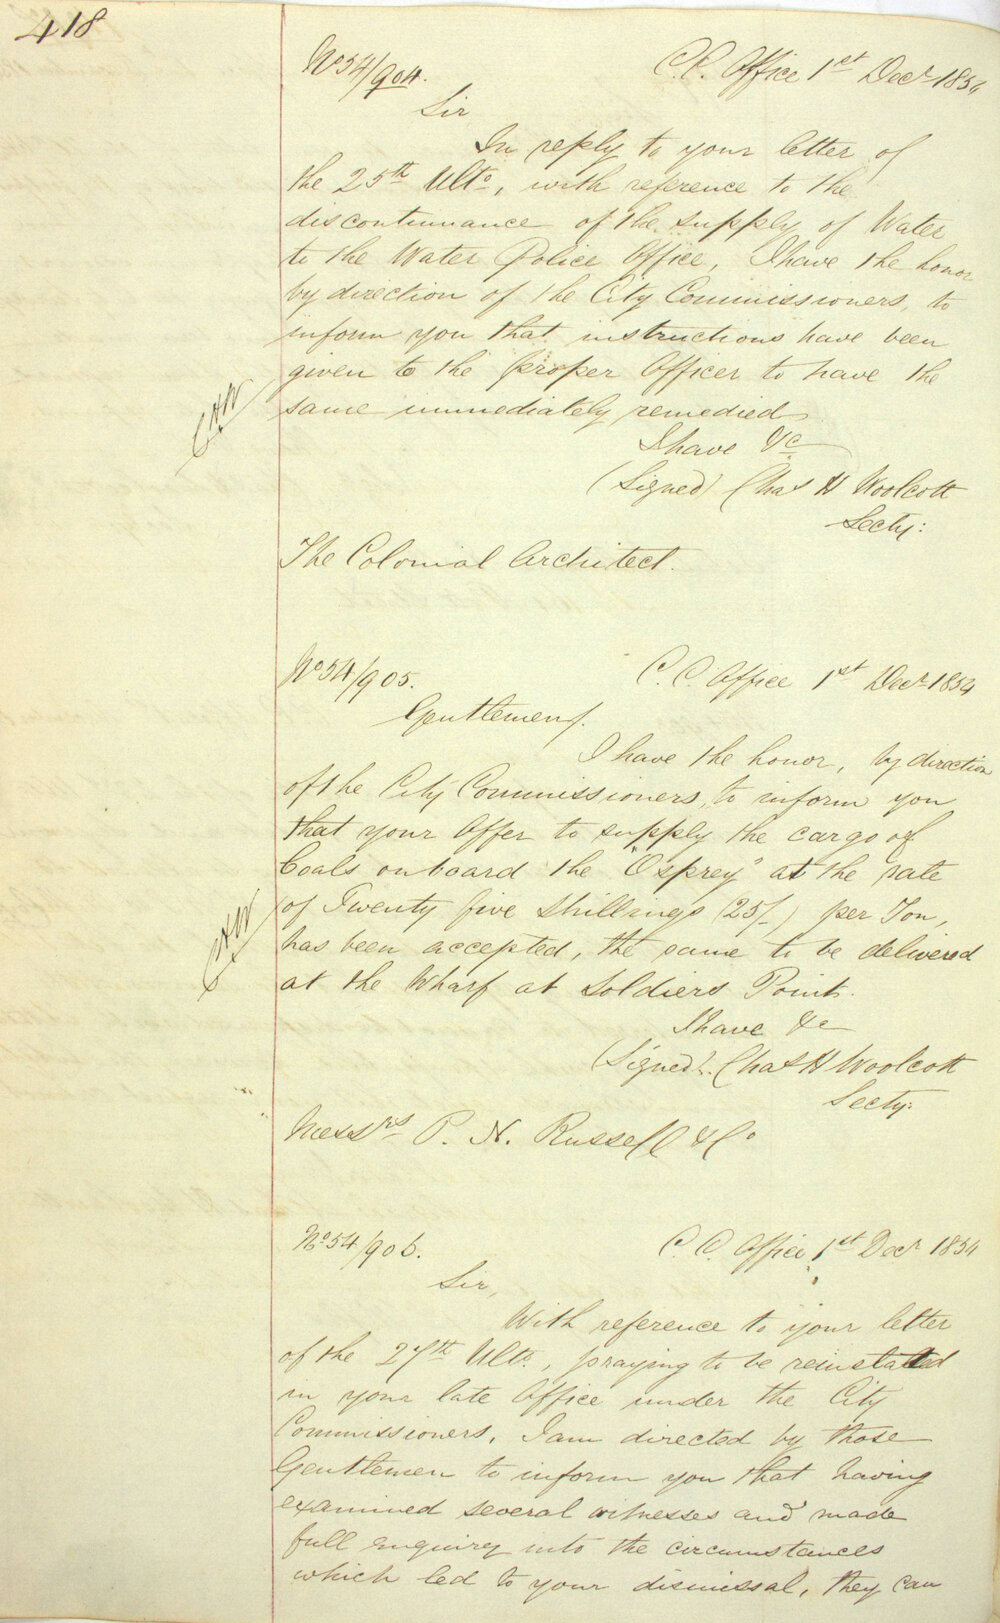 418
No 54/904. C.C. Office 1st Decr 1854
Sir
In reply to your letter of
the 25th Ulto, with reference to the
discontinuance of the supply of Water
to the Water Police Office, I have the honor
by direction of the City Commissioners, to
inform you that instructions have been
given to the proper Officer to have the
same immediately remedied
CHW
I have &c
(Signed) Chas H Woolcott
Secty:
The Colonial Architect.
No 54/905. C.C. Office 1st Decr 1854
Gentlemen,
I have the honor, by direction
of the City Commissioners, to inform you
that your Offer to supply the cargo of
Coals on board the "Osprey" at the rate
of Twenty five Shillings (25/-) per Ton,
has been accepted, the same to be delivered
CHW
at the Wharf at Soldiers Point.
I have &c
(Signed). Chas H Woolcott
Secty:
Messrs P. N. Russell & Co
No 54/906. C.C. Office 1st Decr 1854
Sir,
With reference to your letter
of the 27th Ulto., praying to be reinstated
in your late Office under the City
Commissioners, I am directed by those
Gentlemen to inform you that having
examined several witnesses and made
full enquiry into the circumstances
which led to your dismissal, they can